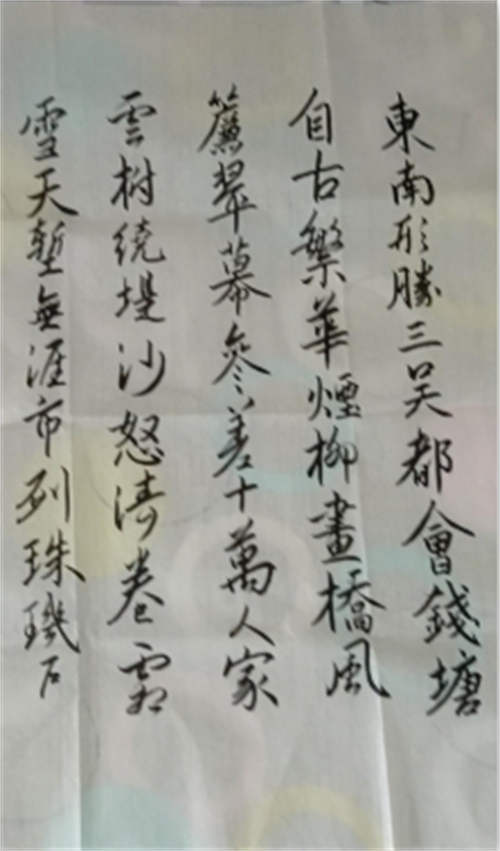 東南形勝三吴都會錢塘
自古繁華煙柳畫橋風
簾翠幕參差十萬人家
雲树绕堤沙怒涛卷霜
雪天塹無涯市列珠璣户